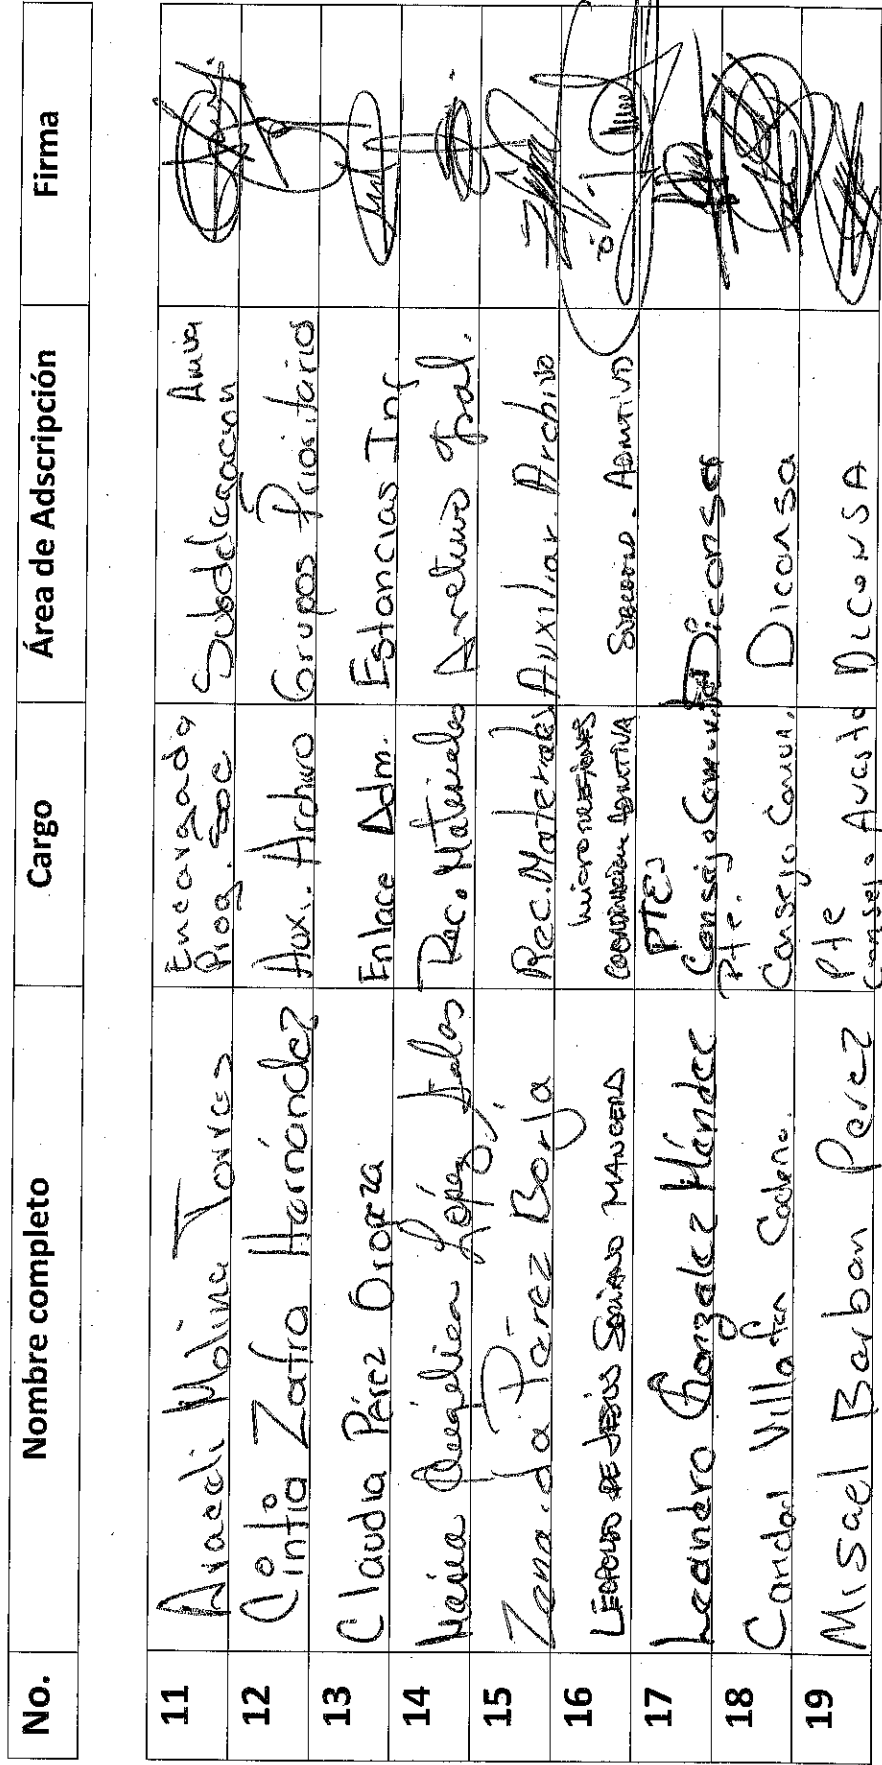 No. Nombre completo Cargo Área de Adscripción Firma
11 Araceli Molina Torres Encargada Prog. Soc Subdelegacion
12 Cintia Zafra Hernández Aux. Archivo Grupos Prioritarios
13 Claudia Pérez Oropeza Enlace Adm. Estancias Inf.
14 María Angélica López Rec. Materiales Archivo Gral.
15 Zenaida Pérez Borja Rec. Materiales Auxiliar. Archivo
16 LEOPOLDO DE JESÚS SORIANO MANCERA COORDINACION ADMTIVA ADMTIVO
17 Leandro González Méndez PTE Consejo Diconsa
18 Caridad Villafan Pte. Consejo Comun. Diconsa
19 Misael Barban Perez Pte Consejo DICONSA